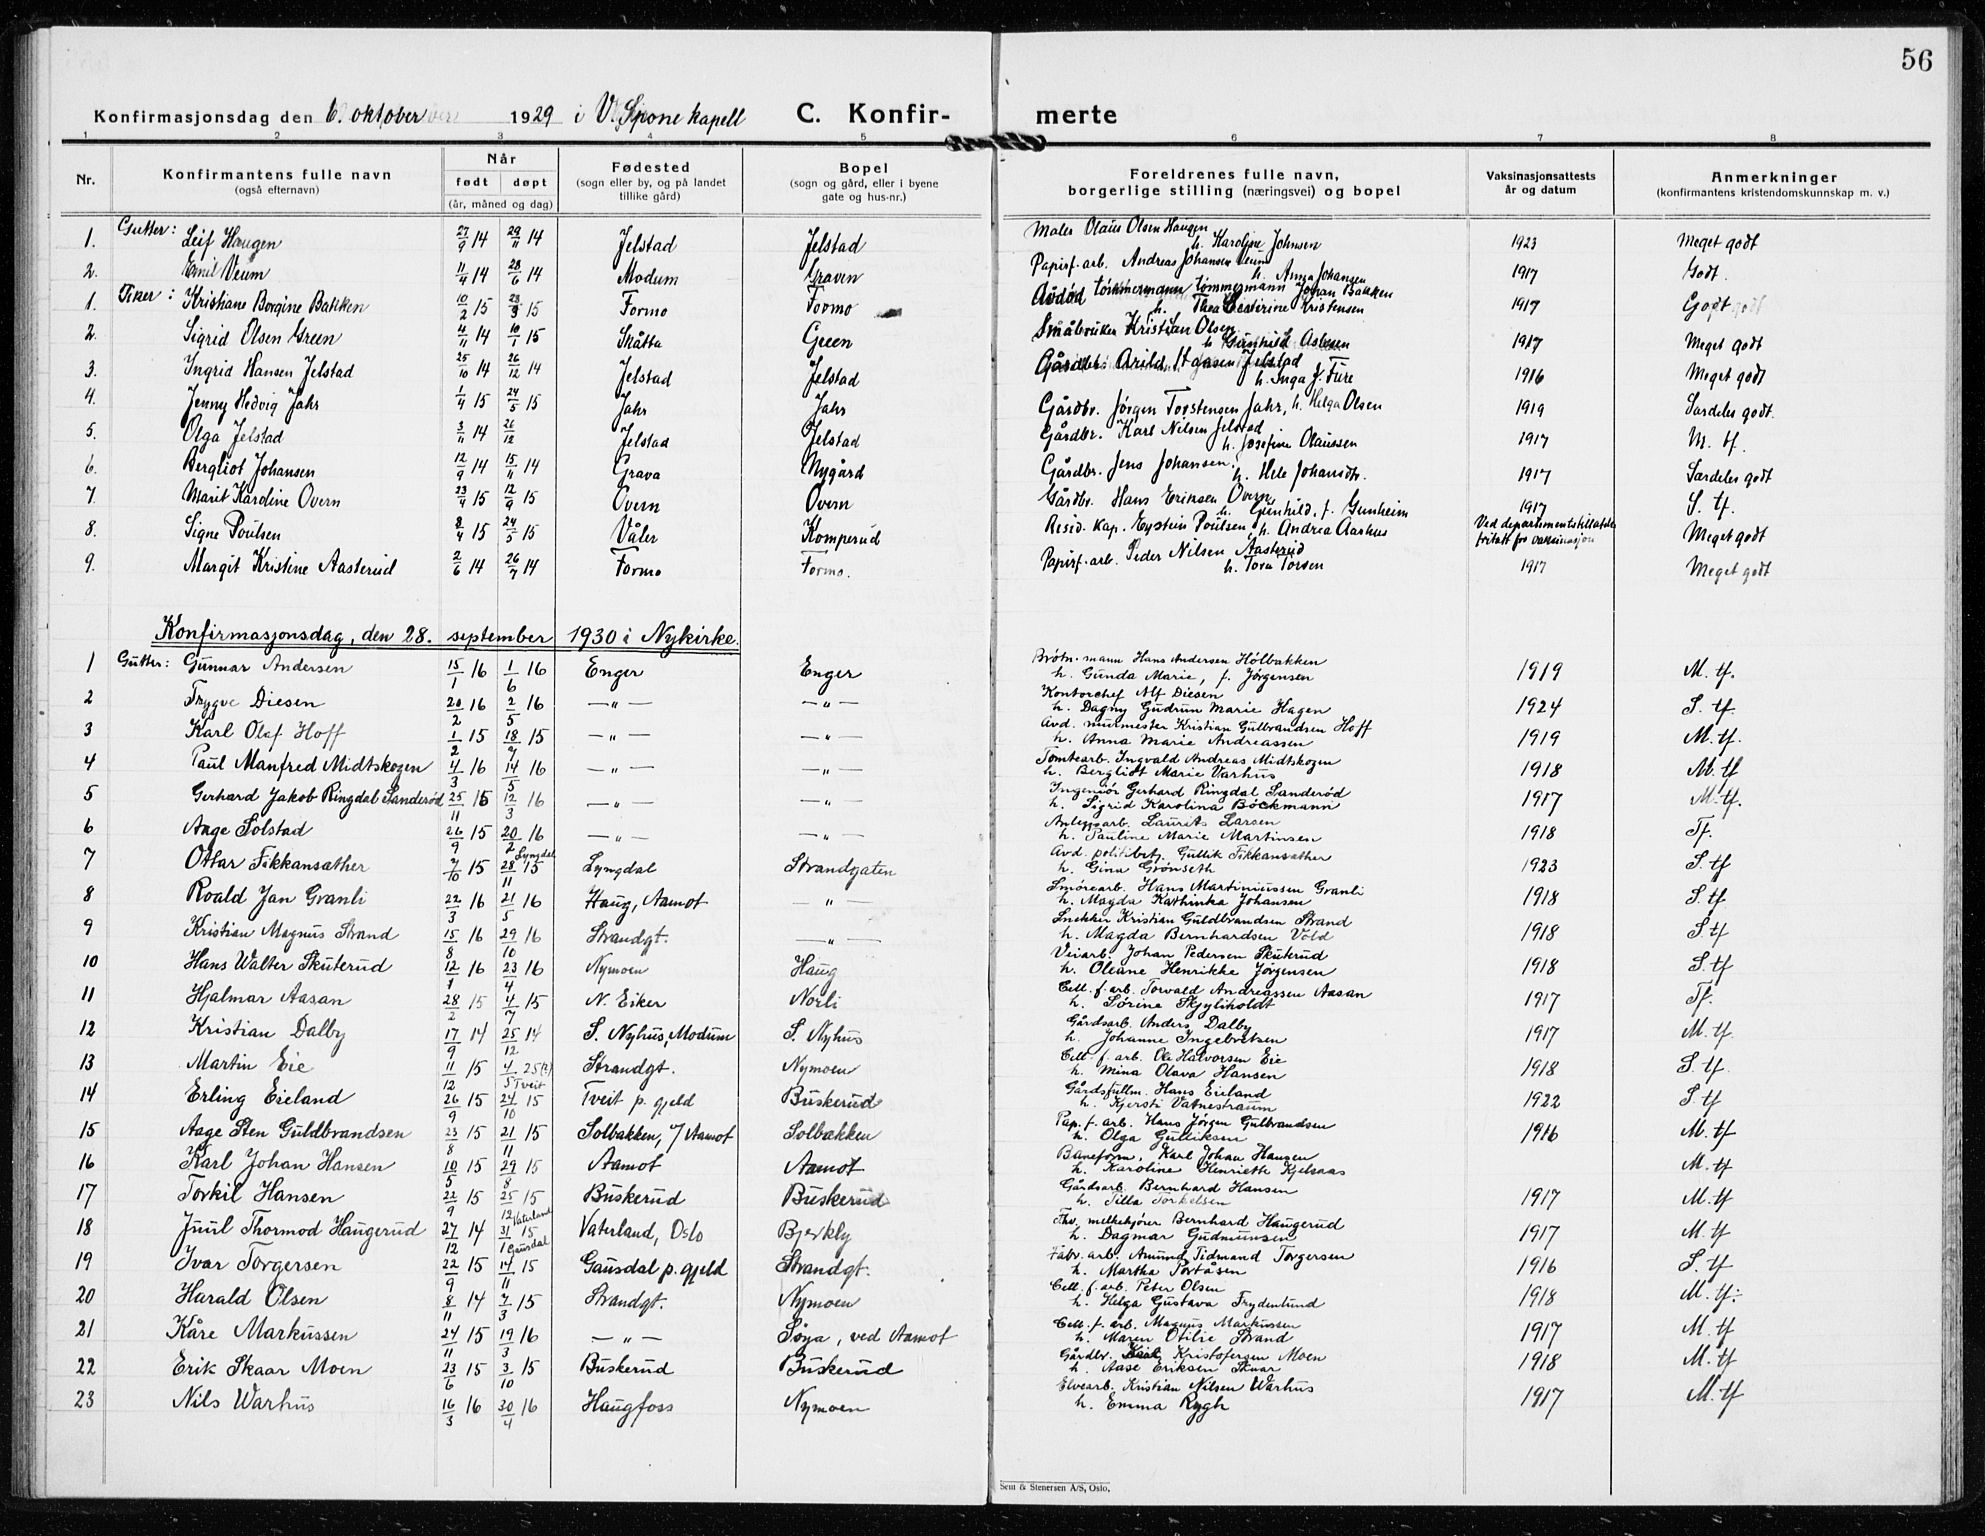 56
Konfirmasjonsdag den 6. oktober 1929 i V. Spone kapell C. Konfir- merte
1 2 3 4 5 6 7 8
Nr. Konfirmantens fulle navn (også efternavn) Når født døpt (år, måned og dag) Fødested (sogn eller by, og på landet tillike gård) Bopel (sogn og gård, eller i byene gate og hus-nr.) Foreldrenes fulle navn, borgerlige stilling (næringsvei) og bopel Vaksinasjonsattests år og datum Anmerkninger (konfirmantens kristendomskunnskap m. v.)
1. Gutter: Leif Haugen 27/9 14 29/11 14 Jelstad Jelstad Maler Olaus Olsen Haugen h. Karoline Johnsen 1923 Meget godt
2. Emil Veum 11/4 14 28/6 14 Modum Gravin Papirf. arb. Andreas Johansen Veum h. Anna Johansen 1917 Godt.
1. Piker: Kristiane Borgine Bakken 10/2 15 23/3 15 Formo Formo Avdød tømmermann Johan Bakken h. Thea Severine Kristensen 1917 Godt
2. Sigrid Olsen Green 4/11 14 10/1 15 Skåtta Green Småbruker Kristian Olsen h. Gunhild Aslesen 1917 Meget godt
3. Ingrid Hansen Jelstad 25/10 14 26/12 14 Jelstad Jelstad Gårdbr. Arild Hansen Jelstad h. Inga J. Fure 1916 Meget godt
4. Jenny Hedvig Jahr 1/4 15 24/5 15 Jahr Jahr Gårdbr. Jørgen Torstensen Jahr, h. Helga Olsen 1919 Særdeles godt.
5. Olga Jelstad 3/11 14 26/12 Jelstad Jelstad Gårdbr. Karl Nilsen Jelstad h. Josefine Olaussen 1917 M. tf.
6. Bergliot Johansen 12/9 14 15/11 14 Grava Nygård Gårdbr. Jens Johansen h. Hele Johansdtr. 1917 Særdeles godt
7. Marit Karoline Overn 23/4 15 12/9 15 Overn Overn Gårdbr. Hans Eriksen Overn h. Gunhild, f. Gunheim 1917 S. tf.
8. Signe Poulsen 8/4 15 24/5 15 Våler Komperud Resid. kap. Eystein Poulsen h. Andrea Aarhus Ved departementstillatelse fritatt fra vaksinasjon Meget godt
9. Margit Kristine Aasterud 2/6 14 26/7 14 Formo Formo. Papirf. arb. Peder Nilsen Aasterud h. Tora Torsen 1917 Meget godt
Konfirmasjonsdag, den 28. september 1930 i Nykirke.
1 Gutter: Gunnar Andersen 15/1 16 1/6 16 Enger Enger Brøtn. mann Hans Andersen Hølbakken h. Gunda Marie, f. Jørgensen 1919 M. tf.
2 Trygve Diesen 20/2 16 2/5 16 — " — — " — Kontorchef Alf Diesen h. Dagny Gudrun Marie Hagen 1924 S. tf.
3 Karl Olaf Hoff 1/2 15 18/7 15 — " — — " — Avd. murmester Kristian Gulbrandsen Hoff h. Anna Marie Andreassen 1919 M. tf.
4 Paul Manfred Midtskogen 4/3 16 14/5 16 — " — — " — Tomtearb. Ingvald Andreas Midtskogen h. Bergliot Marie Varhus 1918 M. tf
5 Gerhard Jakob Ringdal Sanderød 25/11 15 12/3 16 — " — — " — Ingeniør Gerhard Ringdal Sanderød h. Sigrid Karolina Böckmann 1917 M. tf.
6 Aage Solstad 26/9 15 20/2 16 — " — — " — Anleggsarb. Laurits Larsen h. Pauline Marie Martinsen 1918 Tf.
7 Ottar Fikkansæther 7/10 15 Lyngdal 28/11 15 Lyngdal Strandgaten Avd. politibetj. Gullik Fikkansæther h. Gina Grønseth 1923 S. tf
8 Roald Jan Granli 22/3 16 21/5 16 Haug, Aamot — " — Smørearb. Hans Martiniussen Granli h. Magda Kathinka Johansen 1918 S. tf
9 Kristian Magnus Strand 15/8 16 29/10 16 Strandgt. — " — Snekker Kristian Guldbrandsen Strand h. Magda Bernhardsen Vold 1918 S. tf
10 Hans Walter Skuterud 12/1 16 23/4 16 Nymoen Haug Veiarb. Johan Pedersen Skuterud h. Oleane Henrikke Jørgensen 1918 S. tf
11 Hjalmar Aasan 28/2 15 4/7 15 N. Eiker Norli Cell. f. arb. Torvald Andreassen Aasan h. Sørine Skjyliholdt 1917 Tf.
12 Kristian Dalby 17/9 14 25/12 14 S. Nyhus, Modum S. Nyhus Gårdsarb. Anders Dalby h. Johanne Ingebretsen 1917 M. tf.
13 Martin Eie 11/12 15 4/5 25(?) Strandgt. Nymoen Cell. f. arb. Ole Halvorsen Eie h. Mina Olava Hansen 1918 S. tf.
14 Erling Eieland 26/9 15 Tveit 24/10 15 Tveit p. gjeld Buskerud Gårdsfullm. Hans Eieland h. Kjersti Vatnestraum 1922 S. tf
15 Aage Sten Guldbrandsen 23/8 15 21/11 15 Solbakken, Aamot Solbakken Pap. f. arb. Hans Jørgen Gulbrandsen h. Olga Gulliksen 1916 M. tf
16 Karl Johan Hansen 10/5 15 29/8 15 Aamot Aamot Baneform. Karl Johan Hansen h. Karoline Henriette Kjelsaas M. tf
17 Torkil Hansen 22/9 15 25/12 15 Buskerud Buskerud Gårdsarb. Bernhard Hansen h. Tilla Torkelsen 1917 M. tf
18 Juul Thormod Haugerud 27/12 14 Vaterland 31/1 15 Vaterland, Oslo Bjerkly Fhv. melkekjører Bernhard Haugerud h. Dagmar Gudmunsen 1917 M. tf
19 Ivar Torgersen 22/9 15 Gausdal 14/11 15 Gausdal p. gjeld Strandgt. Fabr. arb. Amund Tidmand Torgersen h. Martha Portåsen 1916 S. tf
20 Harald Olsen 8/11 14 7/3 15 Strandgt. Nymoen Cell. f. arb. Peter Olsen h. Helga Gustava Frydenlund 1918 M. tf.
21 Kåre Markussen 24/11 15 19/3 16 — " — Søya, ved Aamot Cell. f. arb. Magnus Markussen h. Maren Otilie Strand 1917 M. tf
22 Erik Skaar Moen 23/6 15 3/10 15 Buskerud Buskerud Gårdbr. Kristofersen Moen h. Aase Eriksen Skaar 1918 M. tf
23 Nils Warhus 16/3 16 30/4 16 Haugfoss Nymoen Elvearb. Kristian Nilsen Warhus h. Emma Rygh 1917 M. tf
Sem & Stenersen A/S, Oslo.